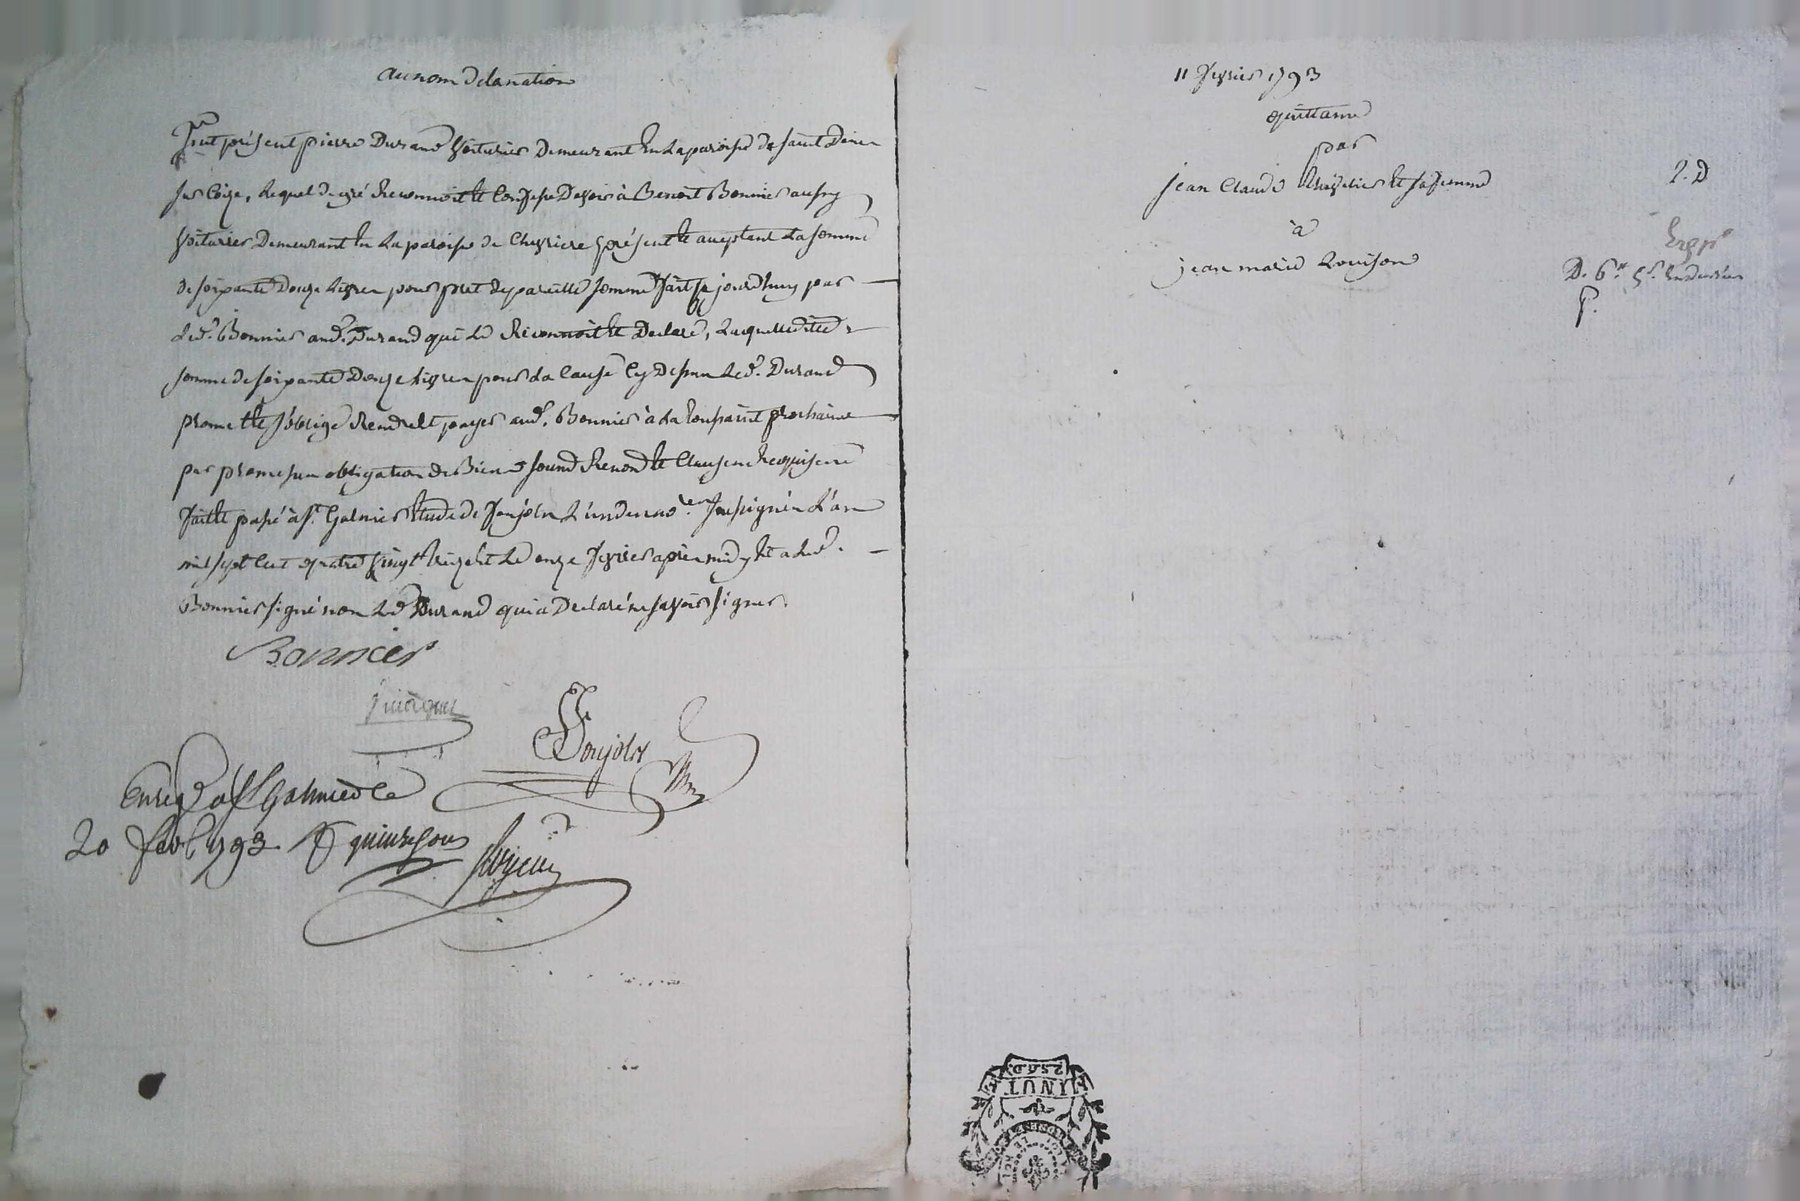 au nom de la nation
fut présent pierre Durand voiturier demeurant en la paroisse de saint Denis
sur Coize, lequel de gré reconnoit et confesse devoir à Benoit Bonnier aussy
voiturier demeurant en la paroisse de Chevriere présent et acceptant la somme
de soixante douze livres pour pret de pareille somme fait ce jourdhuy par
led. Bonnier aud. Durand qui le reconnoit et declare, laquelle ditte
somme de soixante douze livres pour la cause cy dessus led. Durand
promet et s'oblige rendre et payer aud. Bonnier à la toussaint prochaine
par promesses obligation de biens soumd renond et clauses requises
fait et passé à st. Galmier etude de Poujolx l'un des nores soussignés l'an
mil sept cent quatre vingt treize et le onze fevrier après midy et a led.
Bonnier signé non led Durand qui a declaré ne savoir signer.
Bonnier
Poujolx
Enreg à st Galmier le
20 fevr 1793 R quinze sous
11 fevrier 1793
quittance
par
jean Claude et sa femme
à
jean marie Louison
2. D